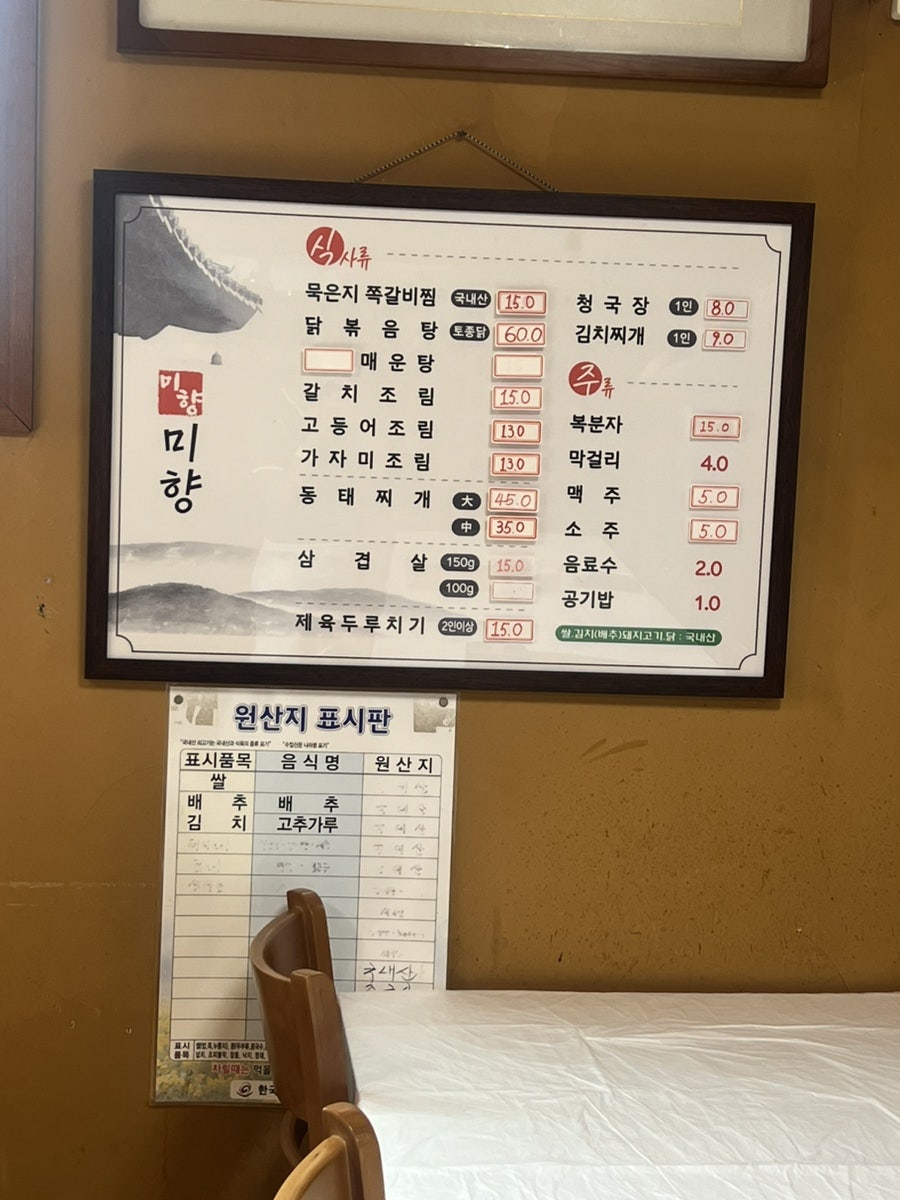 식사류
묵은지 쪽갈비찜 국내산 15.0
닭볶음탕 토종닭 60.0
매운탕
갈치조림 15.0
고등어조림 13.0
가자미조림 13.0
동태찌개 大 45.0
中 35.0
삼겹살 150g 15.0
100g
제육두루치기 2인이상 15.0
청국장 1인 8.0
김치찌개 1인 9.0
주류
복분자 15.0
막걸리 4.0
맥주 5.0
소주 5.0
음료수 2.0
공기밥 1.0
쌀,김치(배추)돼지고기,닭 : 국내산
미향
미향
원산지 표시판
표시품목 음식명 원산지
쌀
배추 배추
김치 고추가루
국내산
표시
품목
차릴때는
한국